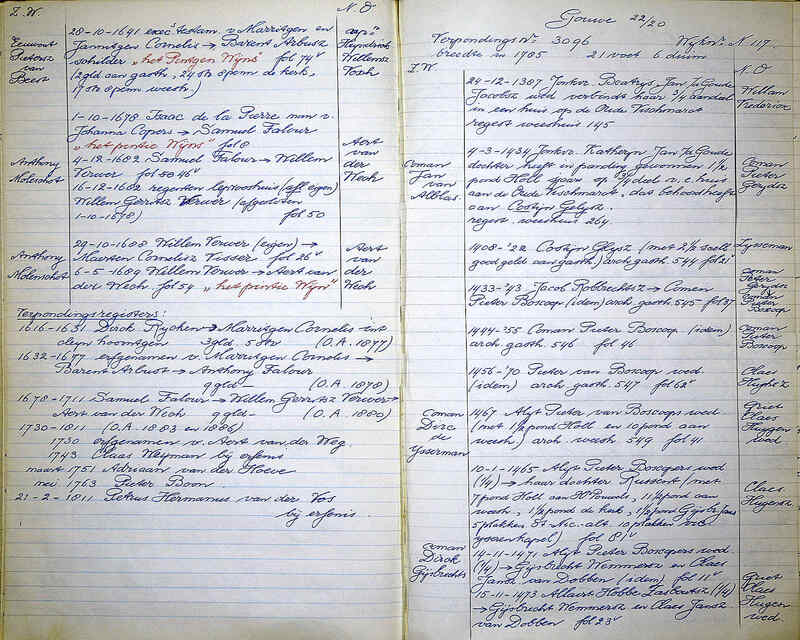 Z.W.
N.O
28-10-1641 exec. testam. v. Marritgen en
Jannitgen Cornelis → Barent Arbutsz
schilder „het Pintgen Wijns" fol 74v
(2gld aan gasth, 24 st 8 penn de kerk,
9 st 8 penn weesh.)
Eeuwout
Pietersz
van
Beest
Heyndrick
Willemsz
Vosch
1-10-1678 Isaac de la Pierre man v.
Johanna Copers → Samuel Falour
„het pintie Wijns" fol 8
4-12-1682 Samuel Falour → Willem
Verwer fol 50 46v
16-12-1682 regenten leprooshuis (afl eigen)
Willem Gerritsz Verwer (afgelosten
1-10-1678) fol 50
Anthony
Molenschot
Aert
van
der
Wech
29-10-1688 Willem Verwer (eigen) →
Maerten Cornelisz Visser fol 26v
6-5-1689 Willem Verwer → Aert van
der Wech fol 54 „het pintie Wijn"
Anthony
Molenschot
Aert
van
der
Wech
Verpondingsregisters:
1616-1631 Dirck Rychen → Marritgen Cornelis int
cleyn hoorntgen 3gld 5 st (O.A. 1877)
1632-1677 erfgenamen v. Marritgen Cornelis →
Barent Arbust → Anthony Falour
9 gld (O.A. 1878)
1678-1711 Samuel Falour → Willem Gerritsz Verwer →
Aert van der Wech 9 gld- (O.A. 1880)
1730-1811 (O.A. 1883 en 1886)
1730 erfgenamen v. Aert van der Weg.
1743 Claas Weyman bij erfenis
maart 1751 Adriaan van der Hoeve
mei 1763 Pieter Boon
21-2-1811 Petrus Hermanus van der Vos
bij erfenis.
Gouwe 22/20
Verpondings No. 3096 Wijk No. N 117
breedte in 1785 21 voet 6 duim
Z.W.
N.O
24-12-1387 Jonkv. Beatrys, Jan v.d Goude
Jacobsz wed verbindt haar 3/4 aandeel
in een huis op de Oude Vischmarct
regest weeshuis 145
Willam
Frederixz
4-3-1434 Jonkv. Katheryn Jan v.d Goude
dochter heeft in panding gewonnen 1/2
pond Holl sjaars op 3/4 deel v. e. huis
aan de Oude Vischmarct, dat behoord heeft
aan Costijn Gelysz.
regest. weeshuis 264
Coman
Jan
van
Alblas
Coman
Pieter
Gerydsz
1408-'22 Costijn Glysz (met 2 1/2 scell
goed geld aan gasth) arch gasth 544 fol 21v
Tysseman
1433-'43 Jacob Robbrechtsz → Comen
Pieter Boscoop (idem) arch gasth 545 fol 37
Coman
Pieter
Gerydsz
Coman
Pieter
Boscoop
1444-'55 Coman Pieter Boscoop (idem)
arch gasth 546 fol 46
Coman
Pieter
Boscoop
1456-'70 Pieter van Boscoop wed
(idem) arch gasth 547 fol 62v
Claes
Hughtz
1467 Alyt Pieter van Boscoops wed.
(met 1/2 pond Holl en 10 pond aan
weesh) arch. weesh 549 fol 41
Coman
Dirc
de
Ysserman
Griet
Claes
Huggen
wed.
10-1-1465 Alyt Pieter Boscgers wed
(1/4) → haar dochter Russent (met
7 pond Holl aan St Pouwels, 11 1/2 pond aan
weesh, 1 1/2 pond de kerk, 1 1/2 pond Gijsb. Jans
5 plakken St. Nic. alt. 10 plakken voor
ysserkapel) fol 81v
Claes
Hugensz.
14-11-1471 Alyt Pieter Boscgers wed.
(1/4) → Gysbrecht Wemmersz en Claes
Jansz. van Dobben (idem) fol 11v
Coman
Dirck
Gijsbrechts
15-11-1473 Allaert Hobbe Lasbautsz (1/4)
→ Gijsbrecht Wemmersz en Claes Jansz
van Dobben fol 23v
Griet
Claes
Hugen
wed